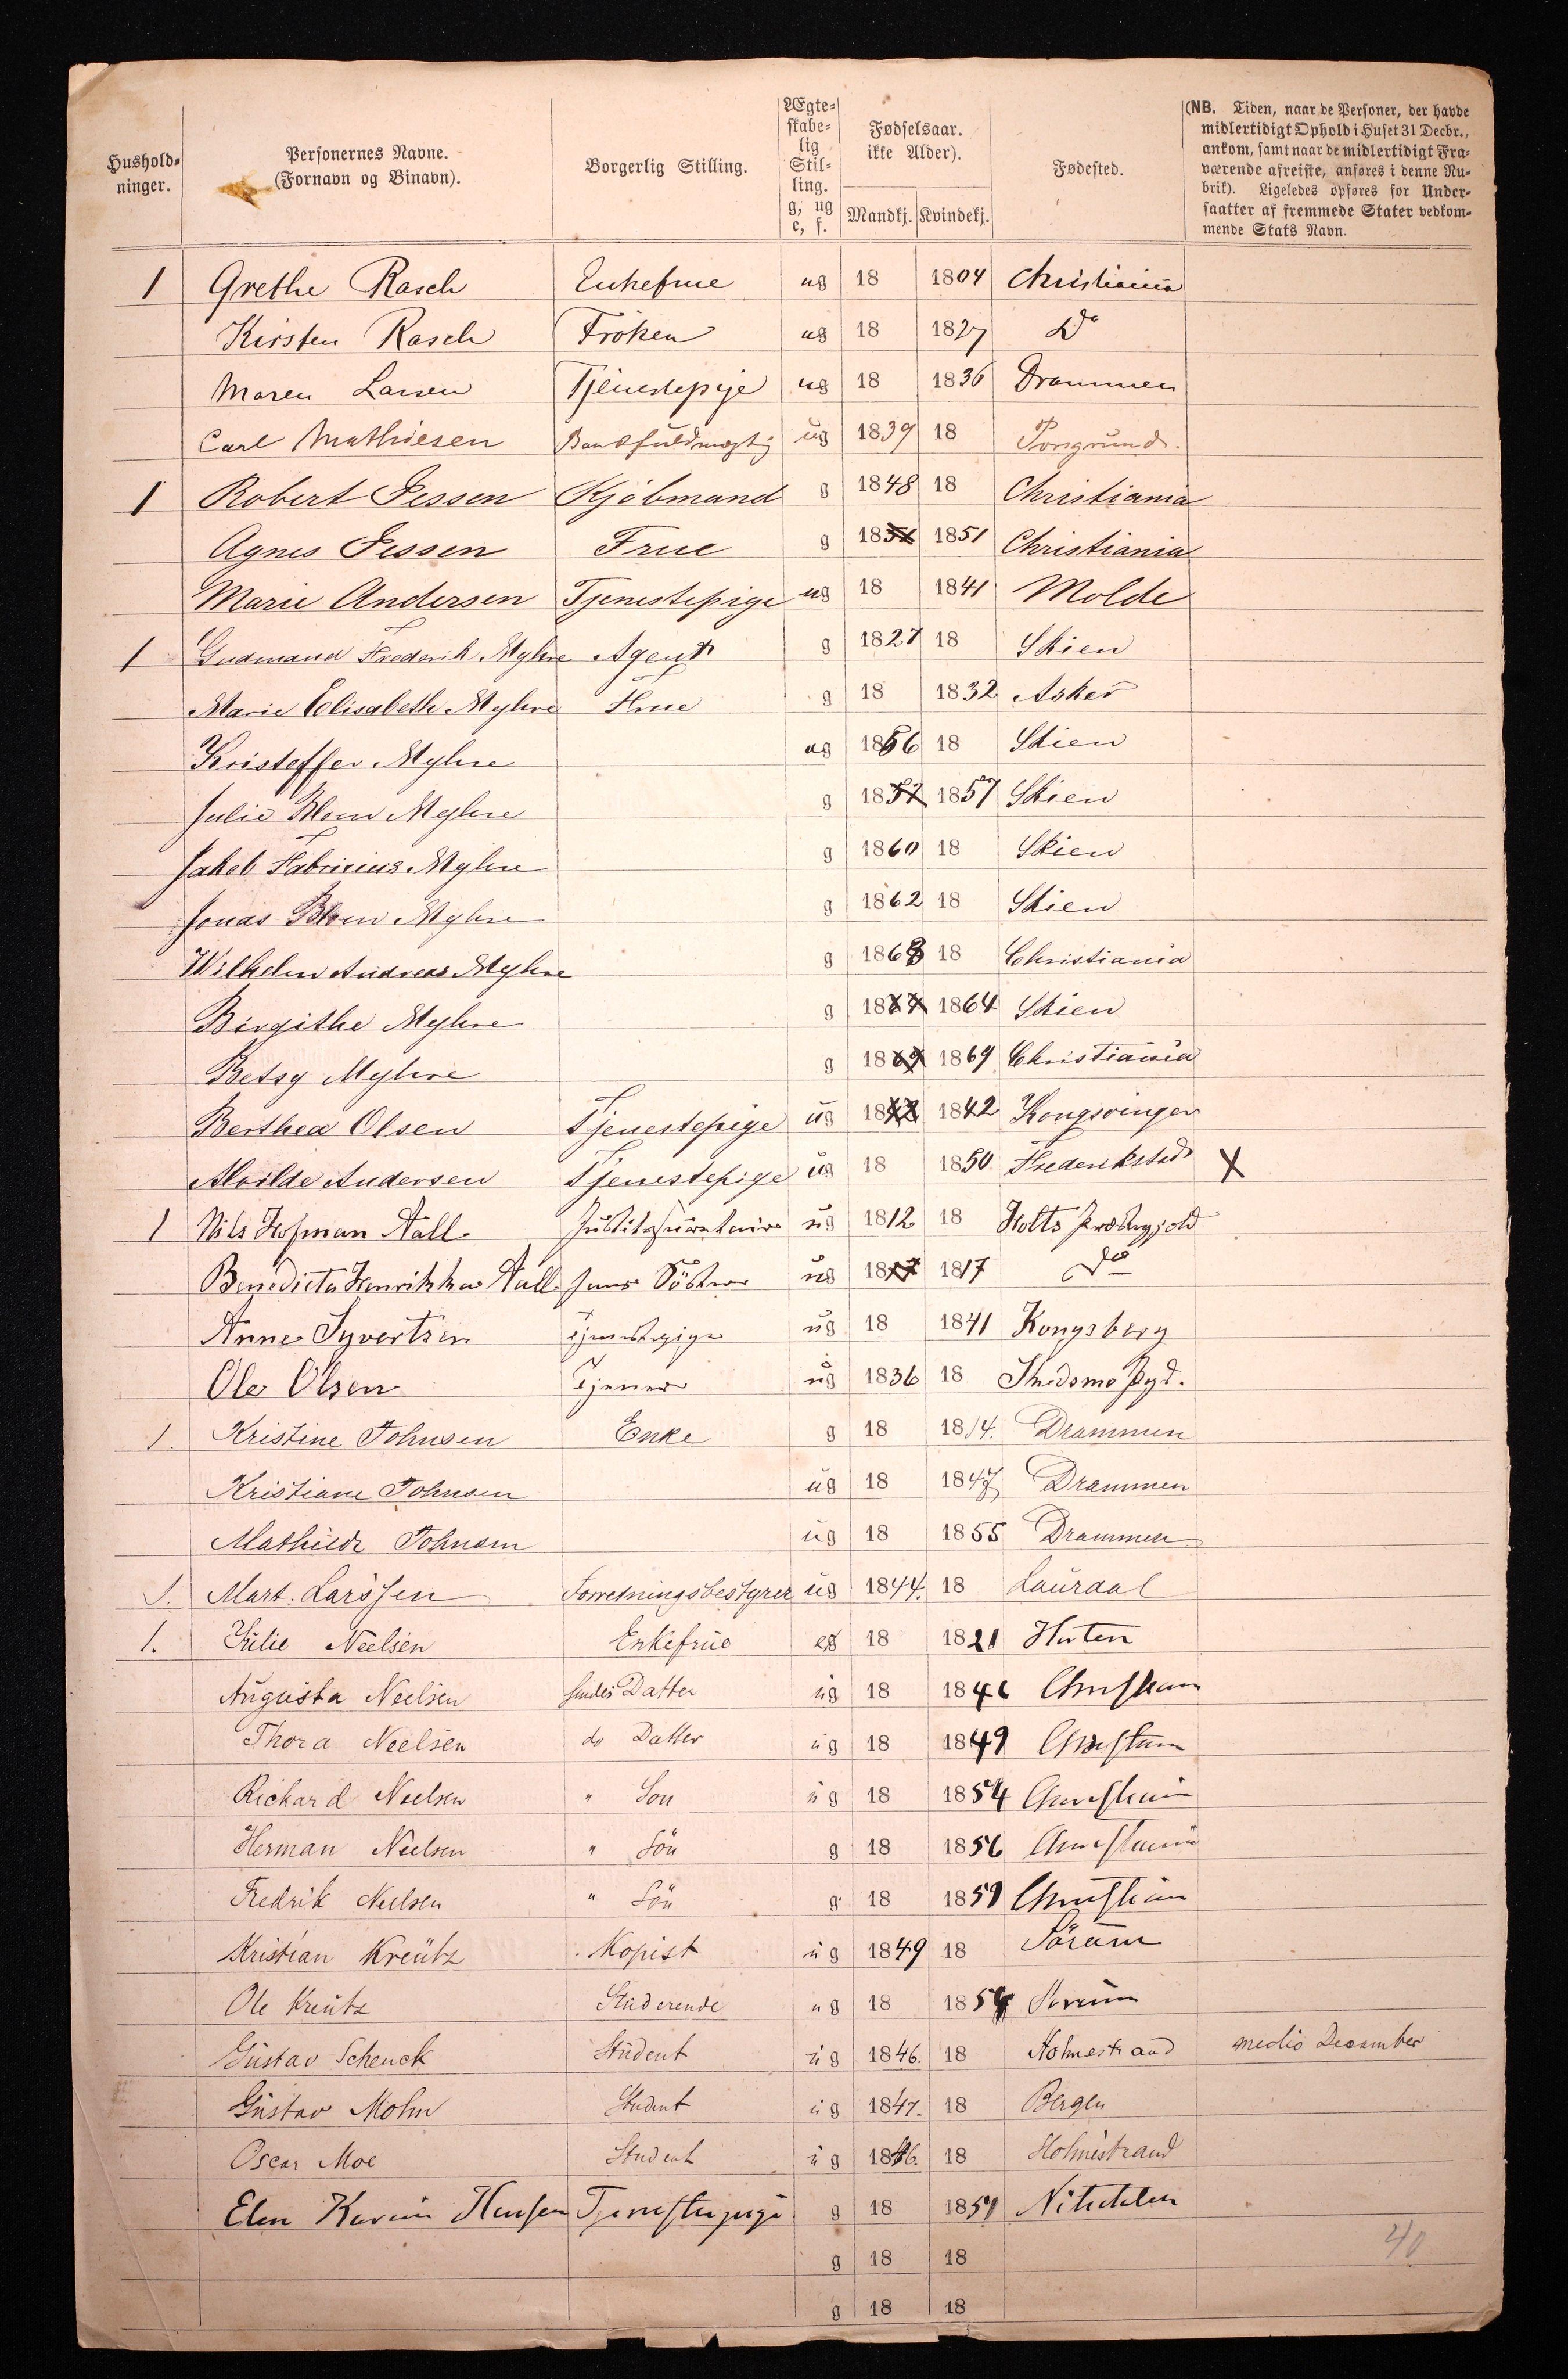 Hushold-
ninger.
Personernes Navne.
(Fornavn og Binavn).
Borgerlig Stilling.
Ægte-
skabe-
lig
Stil-
ling.
g, ug
e, f.
Fødselsaar.
ikke Alder).
Mandkj. Kvindekj.
Fødested.
(NB. Tiden, naar de Personer, der havde
midlertidigt Ophold i Huset 31 Decbr.,
ankom, samt naar de midlertidigt Fra-
værende afreiste, anføres i denne Ru-
brik). Ligeledes opføres for Under-
saatter af fremmede Stater vedkom-
mende Stats Navn.
1 Grethe Rasch Enkefrue ug 18 1804 Christiania
Kirsten Rasch Fröken ug 18 1827 Do
Maren Larsen Tjenestepige ug 18 1836 Drammen
Carl Mathiesen Bankfuldmægtig ug 1839 18 Porsgrund.
1 Robert Jessen Kjöbmand g 1848 18 Christiania
Agnes Jessen Frue g 1851 1851 Christiania
Marie Andersen Tjenestepige ug 18 1841 Molde
1 Gudmand Frederik Myhre Agent g 1827 18 Skien
Marie Elisabeth Myhre Frue g 18 1832 Asker
Kristoffer Myhre ug 1856 18 Skien
Julie Blom Myhre g 1857 1857 Skien
Jakob Fabricius Myhre g 1860 18 Skien
Jonas Blom Myhre g 1862 18 Skien
Wilhelm Andreas Myhre g 1868 18 Christiania
Birgithe Myhre g 18 1864 Skien
Betsy Myhre g 1869 1869 Christiania
Berthea Olsen Tjenestepige ug 1842 1842 Kongsvinger
Alvilde Andersen Tjenestepige ug 18 1850 Frederikstad X
1 Nils Hofman Aall ug 1812 18 Holts Præstegjeld
Benedicte Henrikka Aall hans Söster ug 1817 1817 do
Anne Syvertsen Tjenestepige ug 18 1841 Kongsberg
Ole Olsen Tjener ug 1836 18 Skedsmo Pgd.
1. Kristine Johnsen Enke g 18 1814. Drammen
Kristiane Johnsen ug 18 1847 Drammen
Mathilde Johnsen ug 18 1855 Drammen
1. Mart. Larssen Forretningsbestyrer ug 1844. 18 Laurdal
1. Julie Neelsen Enkefrue eg 18 1821 Horten
Augusta Neelsen hendes Datter ug 18 1846 Christiania
Thora Neelsen do Datter ug 18 1849 Christiania
Rickard Neelsen " Son ug 18 1854 Christiania
Herman Neelsen " Sön g 18 1856 Christiania
Fredrik Neelsen " Sön g 18 1859 Christiania
Kristian Kreütz Kopist ug 1849 18 Sörum
Ole Kreutz Studerende ug 18 1854 Sorum
Gustav Schenck Student ug 1846. 18 Holmestrand medio December
Gustav Mohn Student ug 1847. 18 Bergen
Oscar Moe Student ug 1846. 18 Holmestrand
Elen Karine Hansen Tjenestepige g 18 1851 Nitedalen
g 18 18
40
g 18 18